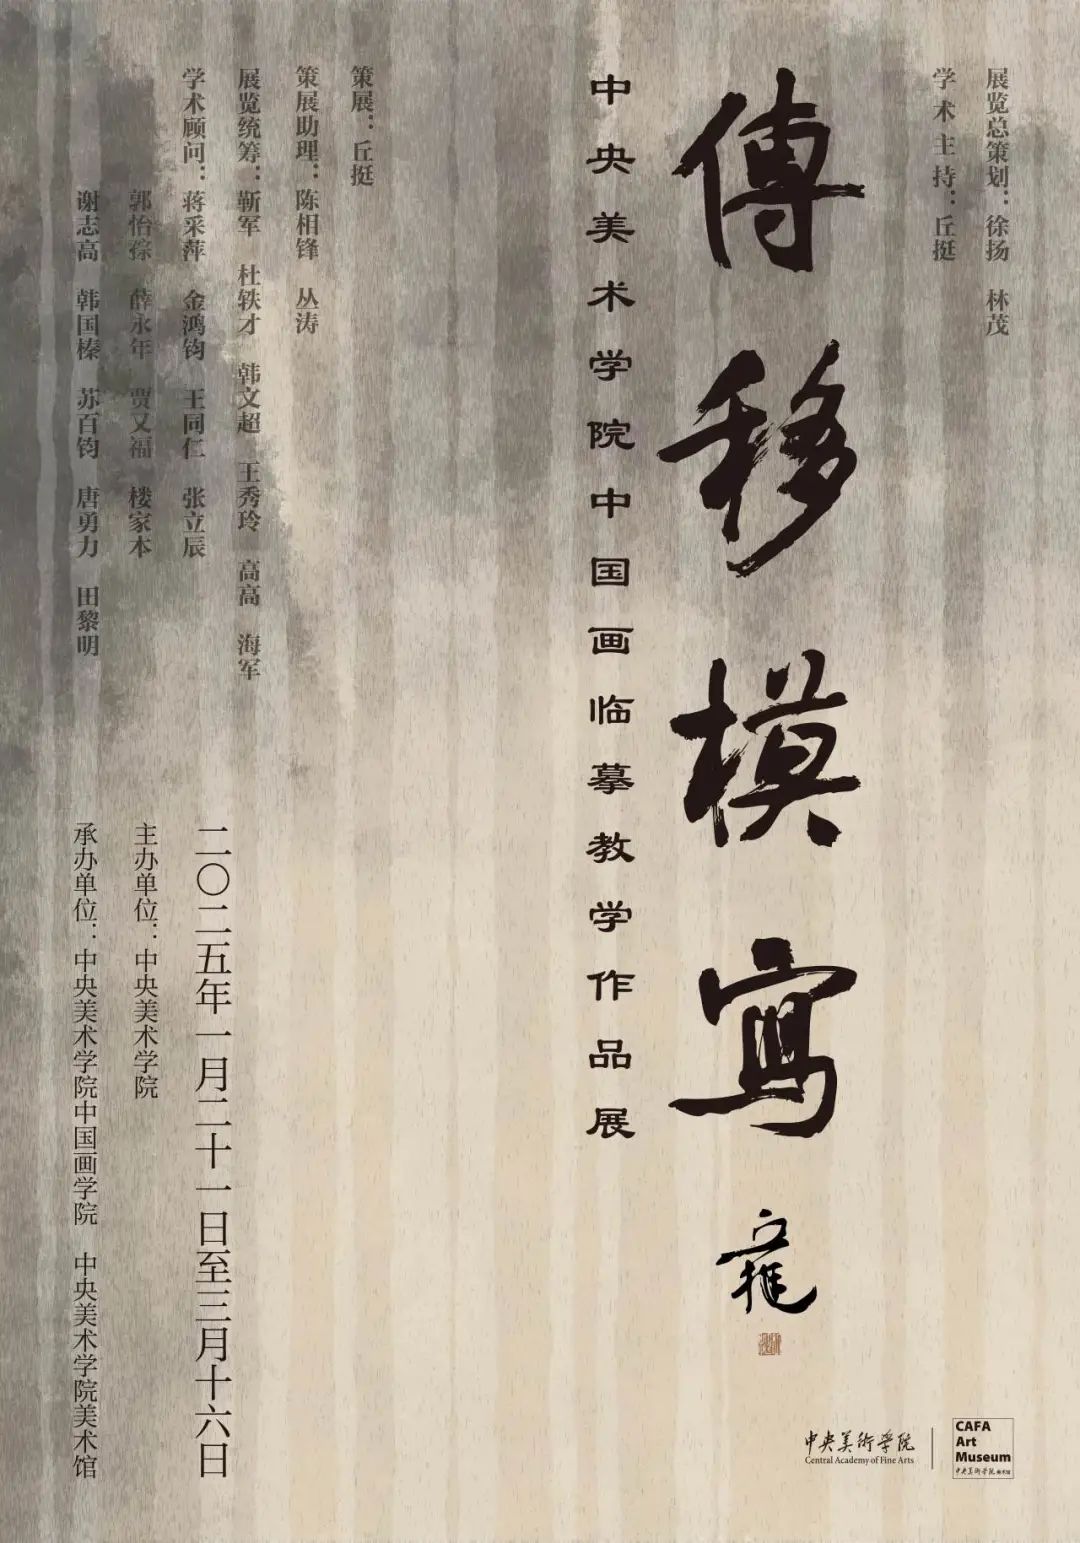 展览总策划：徐扬　林茂
学术主持：丘挺
傳移模寫
中央美术学院中国画临摹教学作品展
策展：丘挺
策展助理：陈相锋　丛涛
展览统筹：靳军　杜轶才　韩文超　王秀玲　高高　海军
学术顾问：蒋采萍　金鸿钧　王同仁　张立辰
郭怡孮　薛永年　贾又福　楼家本
谢志高　韩国榛　苏百钧　唐勇力　田黎明
二〇二五年一月二十一日至三月十六日
主办单位：中央美术学院
承办单位：中央美术学院中国画学院　中央美术学院美术馆
中央美術学院
Central Academy of Fine Arts
CAFA
Art
Museum
中央美術学院美术馆